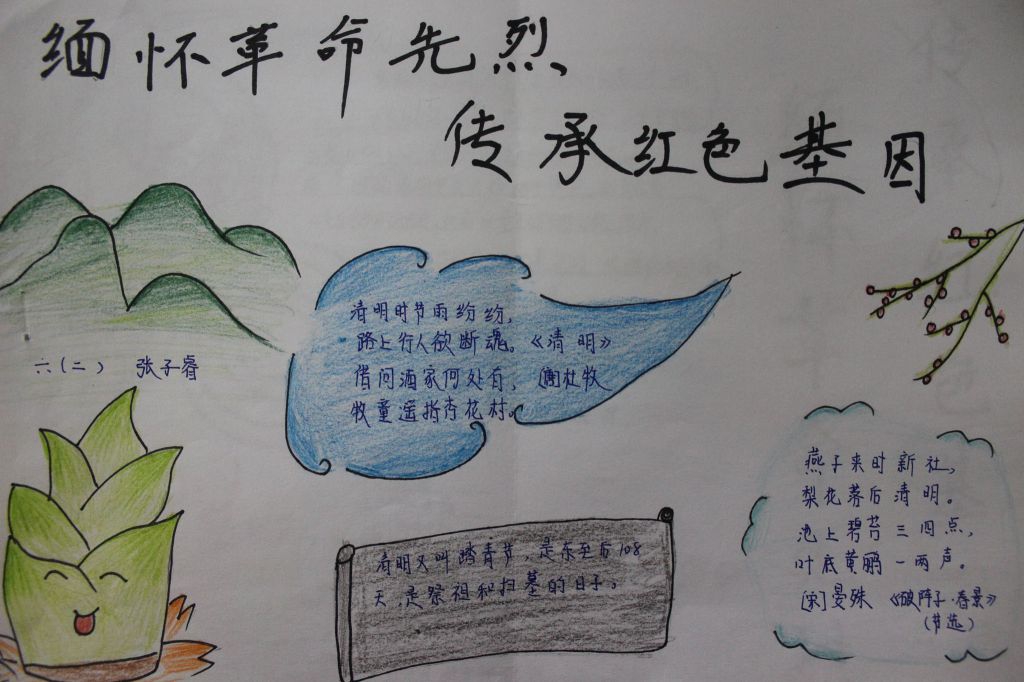 缅怀革命先烈
传承红色基因
六(二) 张子睿
清明时节雨纷纷,
路上行人欲断魂。《清明》
借问酒家何处有, [唐]杜牧
牧童遥指杏花村。
清明又叫踏青节,是冬至后108
天,是祭祖和扫墓的日子。
燕子来时新社,
梨花落后清明。
池上碧苔三四点,
叶底黄鹂一两声。
[宋]晏殊 《破阵子·春景》
(节选)